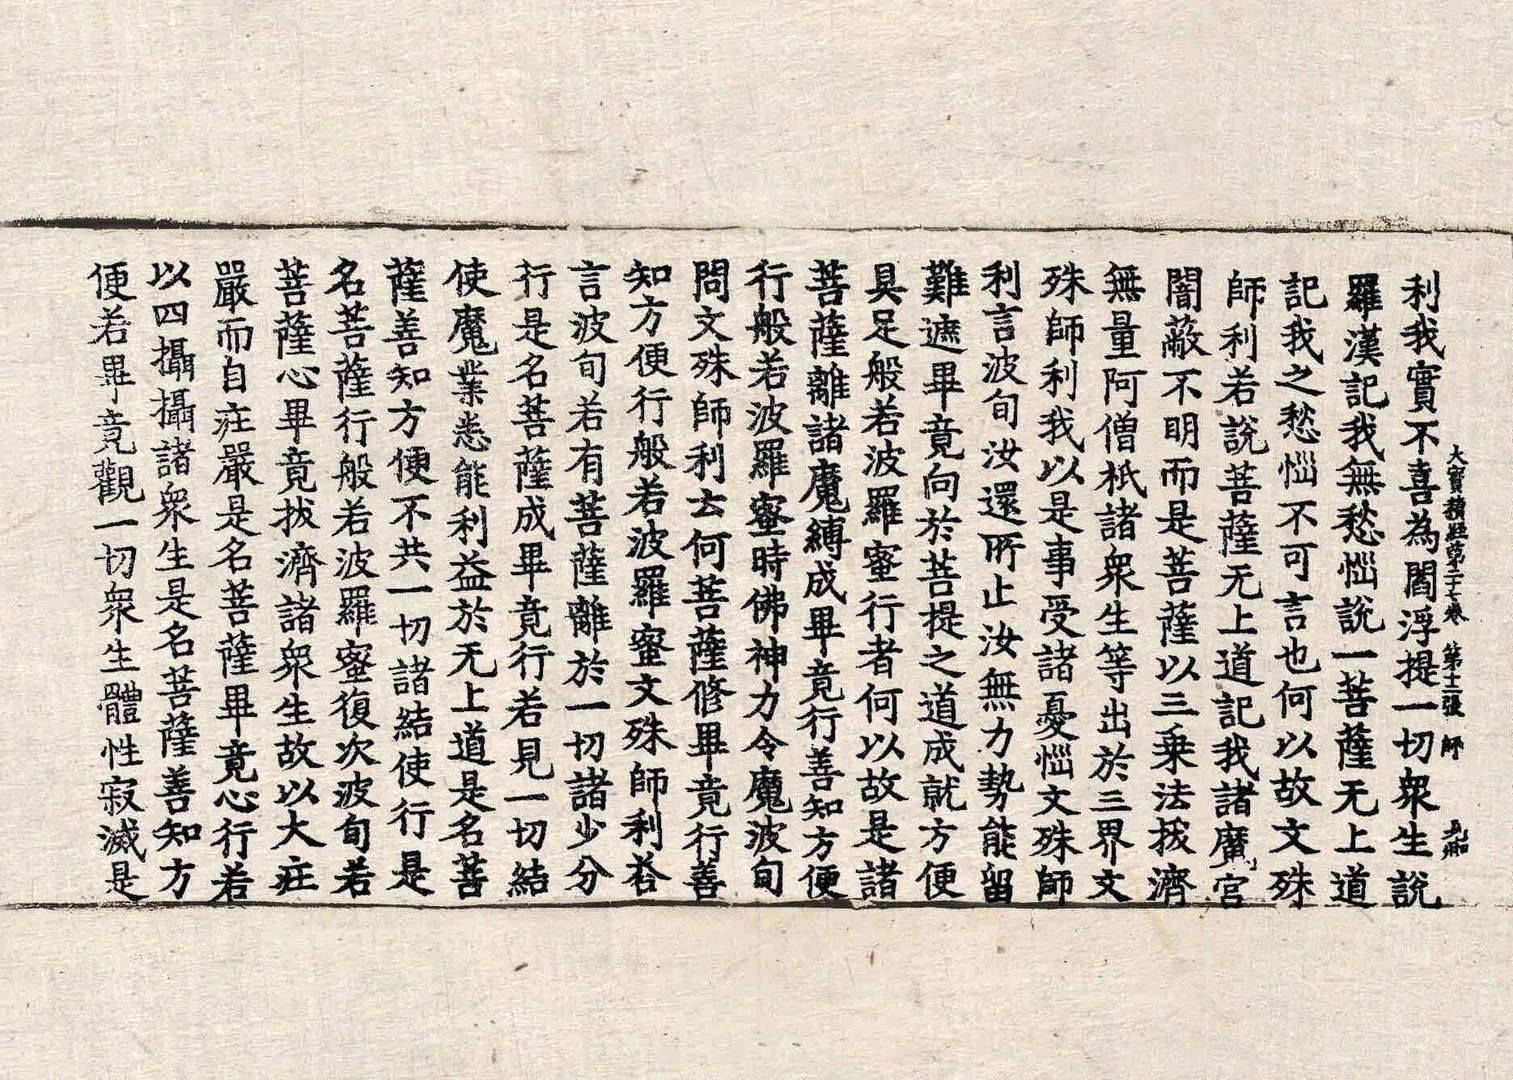 大寶積經第二十七卷 第十二張 師
利我實不喜為閻浮提一切眾生說
羅漢記我無愁惱說一菩薩无上道
記我之愁惱不可言也何以故文殊
師利若說菩薩无上道記我諸魔宮
闇蔽不明而是菩薩以三乘法拔濟
無量阿僧祇諸眾生等出於三界文
殊師利我以是事受諸憂惱文殊師
利言波旬汝還所止汝無力勢能留
難遮畢竟向於菩提之道成就方便
具足般若波羅蜜行者何以故是諸
菩薩離諸魔縛成畢竟行善知方便
行般若波羅蜜時佛神力令魔波旬
問文殊師利云何菩薩修畢竟行善
知方便行般若波羅蜜文殊師利荅
言波旬若有菩薩離於一切諸少分
行是名菩薩成畢竟行若見一切結
使魔業悉能利益於无上道是名菩
薩善知方便不共一切諸結使行是
名菩薩行般若波羅蜜復次波旬若
菩薩心畢竟拔濟諸眾生故以大莊
嚴而自莊嚴是名菩薩畢竟心行若
以四攝攝諸眾生是名菩薩善知方
便若畢竟觀一切眾生體性寂滅是